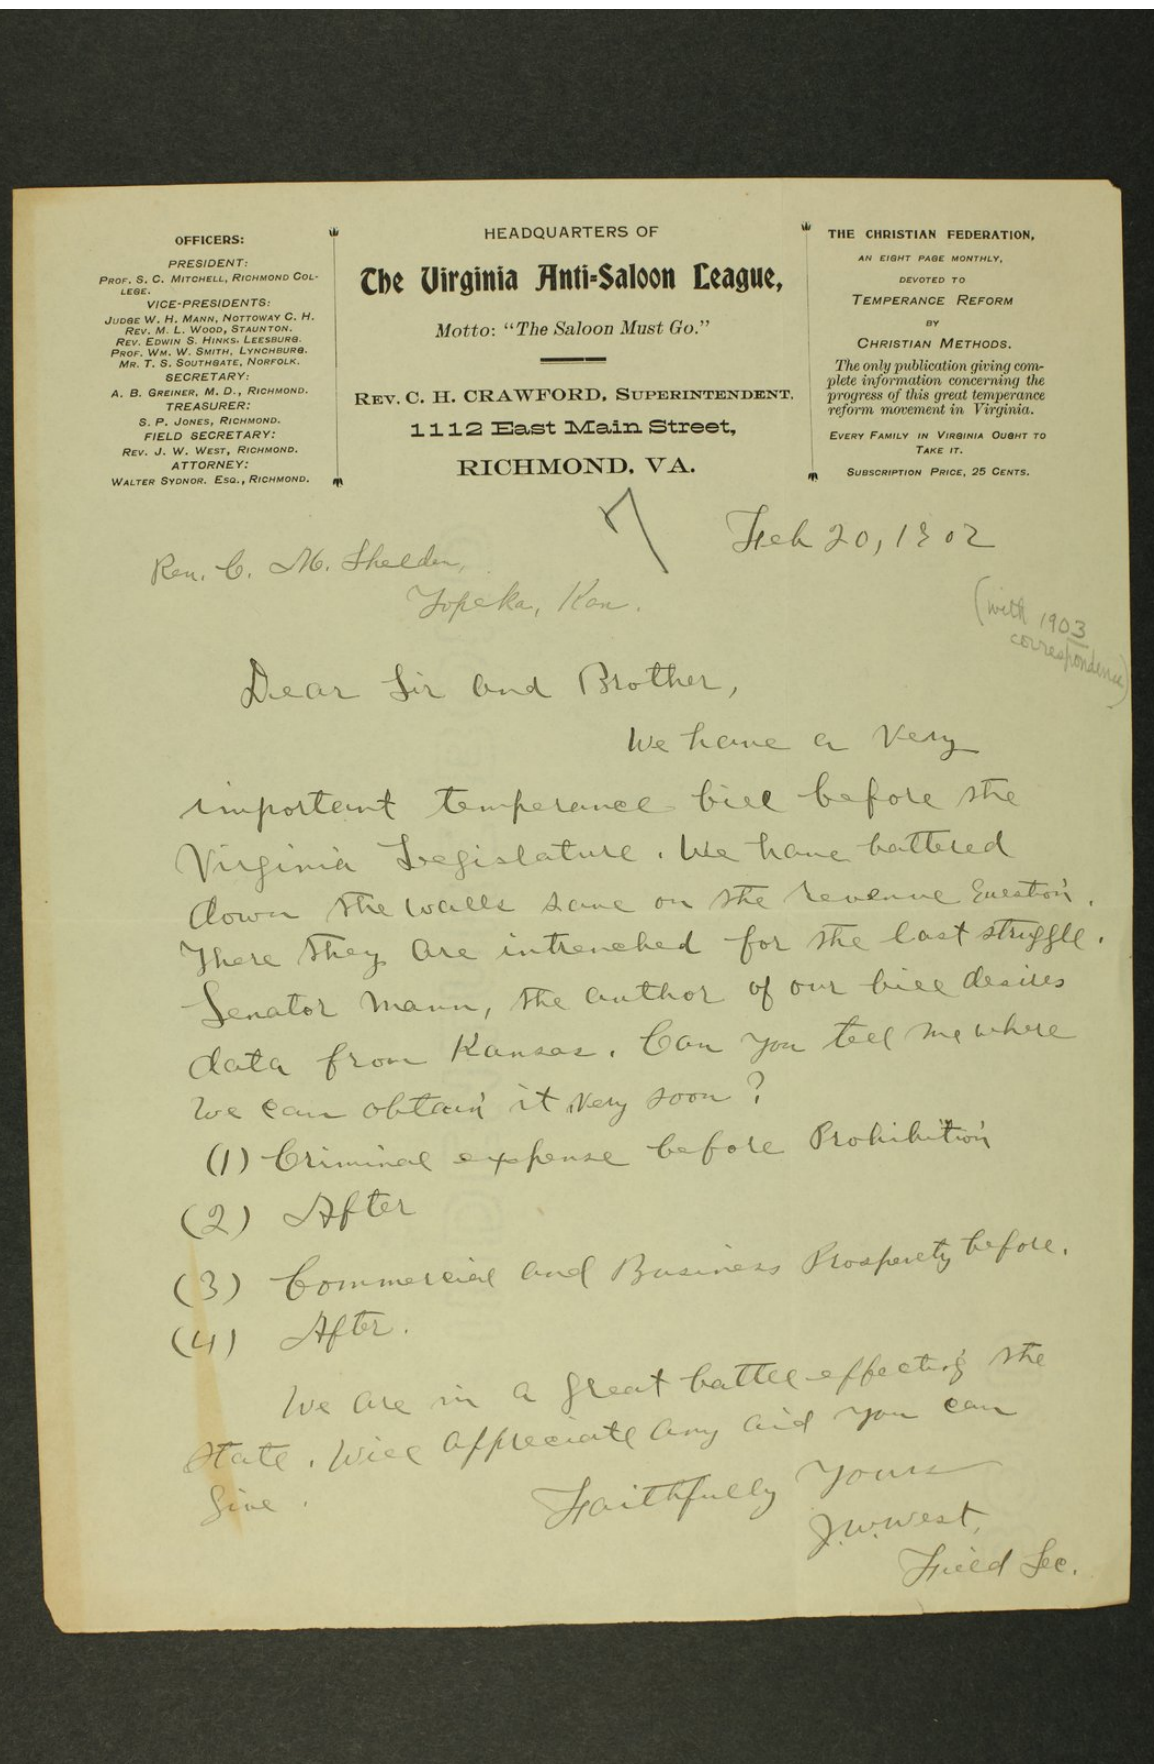 OFFICERS:
PRESIDENT:
PROF. S. C. MITCHELL, RICHMOND COL-
LEGE.
VICE-PRESIDENTS:
JUDGE W. H. MANN, NOTTOWAY C. H.
REV. M. L. WOOD, STAUNTON.
REV. EDWIN S. HINKS, LEESBURG.
PROF. WM. W. SMITH, LYNCHBURG.
MR. T. S. SOUTHGATE, NORFOLK.
SECRETARY:
A. B. GREINER, M. D., RICHMOND.
TREASURER:
S. P. JONES, RICHMOND.
FIELD SECRETARY:
REV. J. W. WEST, RICHMOND.
ATTORNEY:
WALTER SYDNOR. ESQ., RICHMOND.
HEADQUARTERS OF
The Virginia Anti-Saloon League,
Motto: "The Saloon Must Go."
REV. C. H. CRAWFORD, SUPERINTENDENT.
1112 East Main Street,
RICHMOND, VA.
THE CHRISTIAN FEDERATION,
AN EIGHT PAGE MONTHLY,
DEVOTED TO
TEMPERANCE REFORM
BY
CHRISTIAN METHODS.
The only publication giving com-
plete information concerning the
progress of this great temperance
reform movement in Virginia.
EVERY FAMILY IN VIRGINIA OUGHT TO
TAKE IT.
SUBSCRIPTION PRICE, 25 CENTS.
Feb 20, 1902
Rev. C. M. Sheldon,
Topeka, Kan.
(with 1903
correspondence)
Dear Sir and Brother,
We have a very
important temperance bill before the
Virginia Legislature. We have battered
down the walls save on the revenue question.
There they are intrenched for the last struggle.
Senator Mann, the author of our bill desires
data from Kansas. Can you tell me where
we can obtain it very soon?
(1) Criminal expense before Prohibition
(2) After
(3) Commercial and Business Prosperity before.
(4) After.
We are in a great battle effecting the
state. Will appreciate any aid you can
give.
Faithfully Yours
J. W. West,
Field Sec.